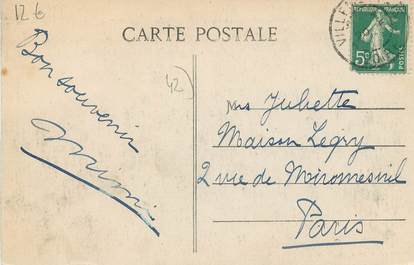 126
CARTE POSTALE
VILLEN
REPUBLIQUE FRANÇAISE
5c
POSTES
Bon souvenir
Mimi
42
Ms Juliette
Maison Legry
2 rue de Miromesnil
Paris